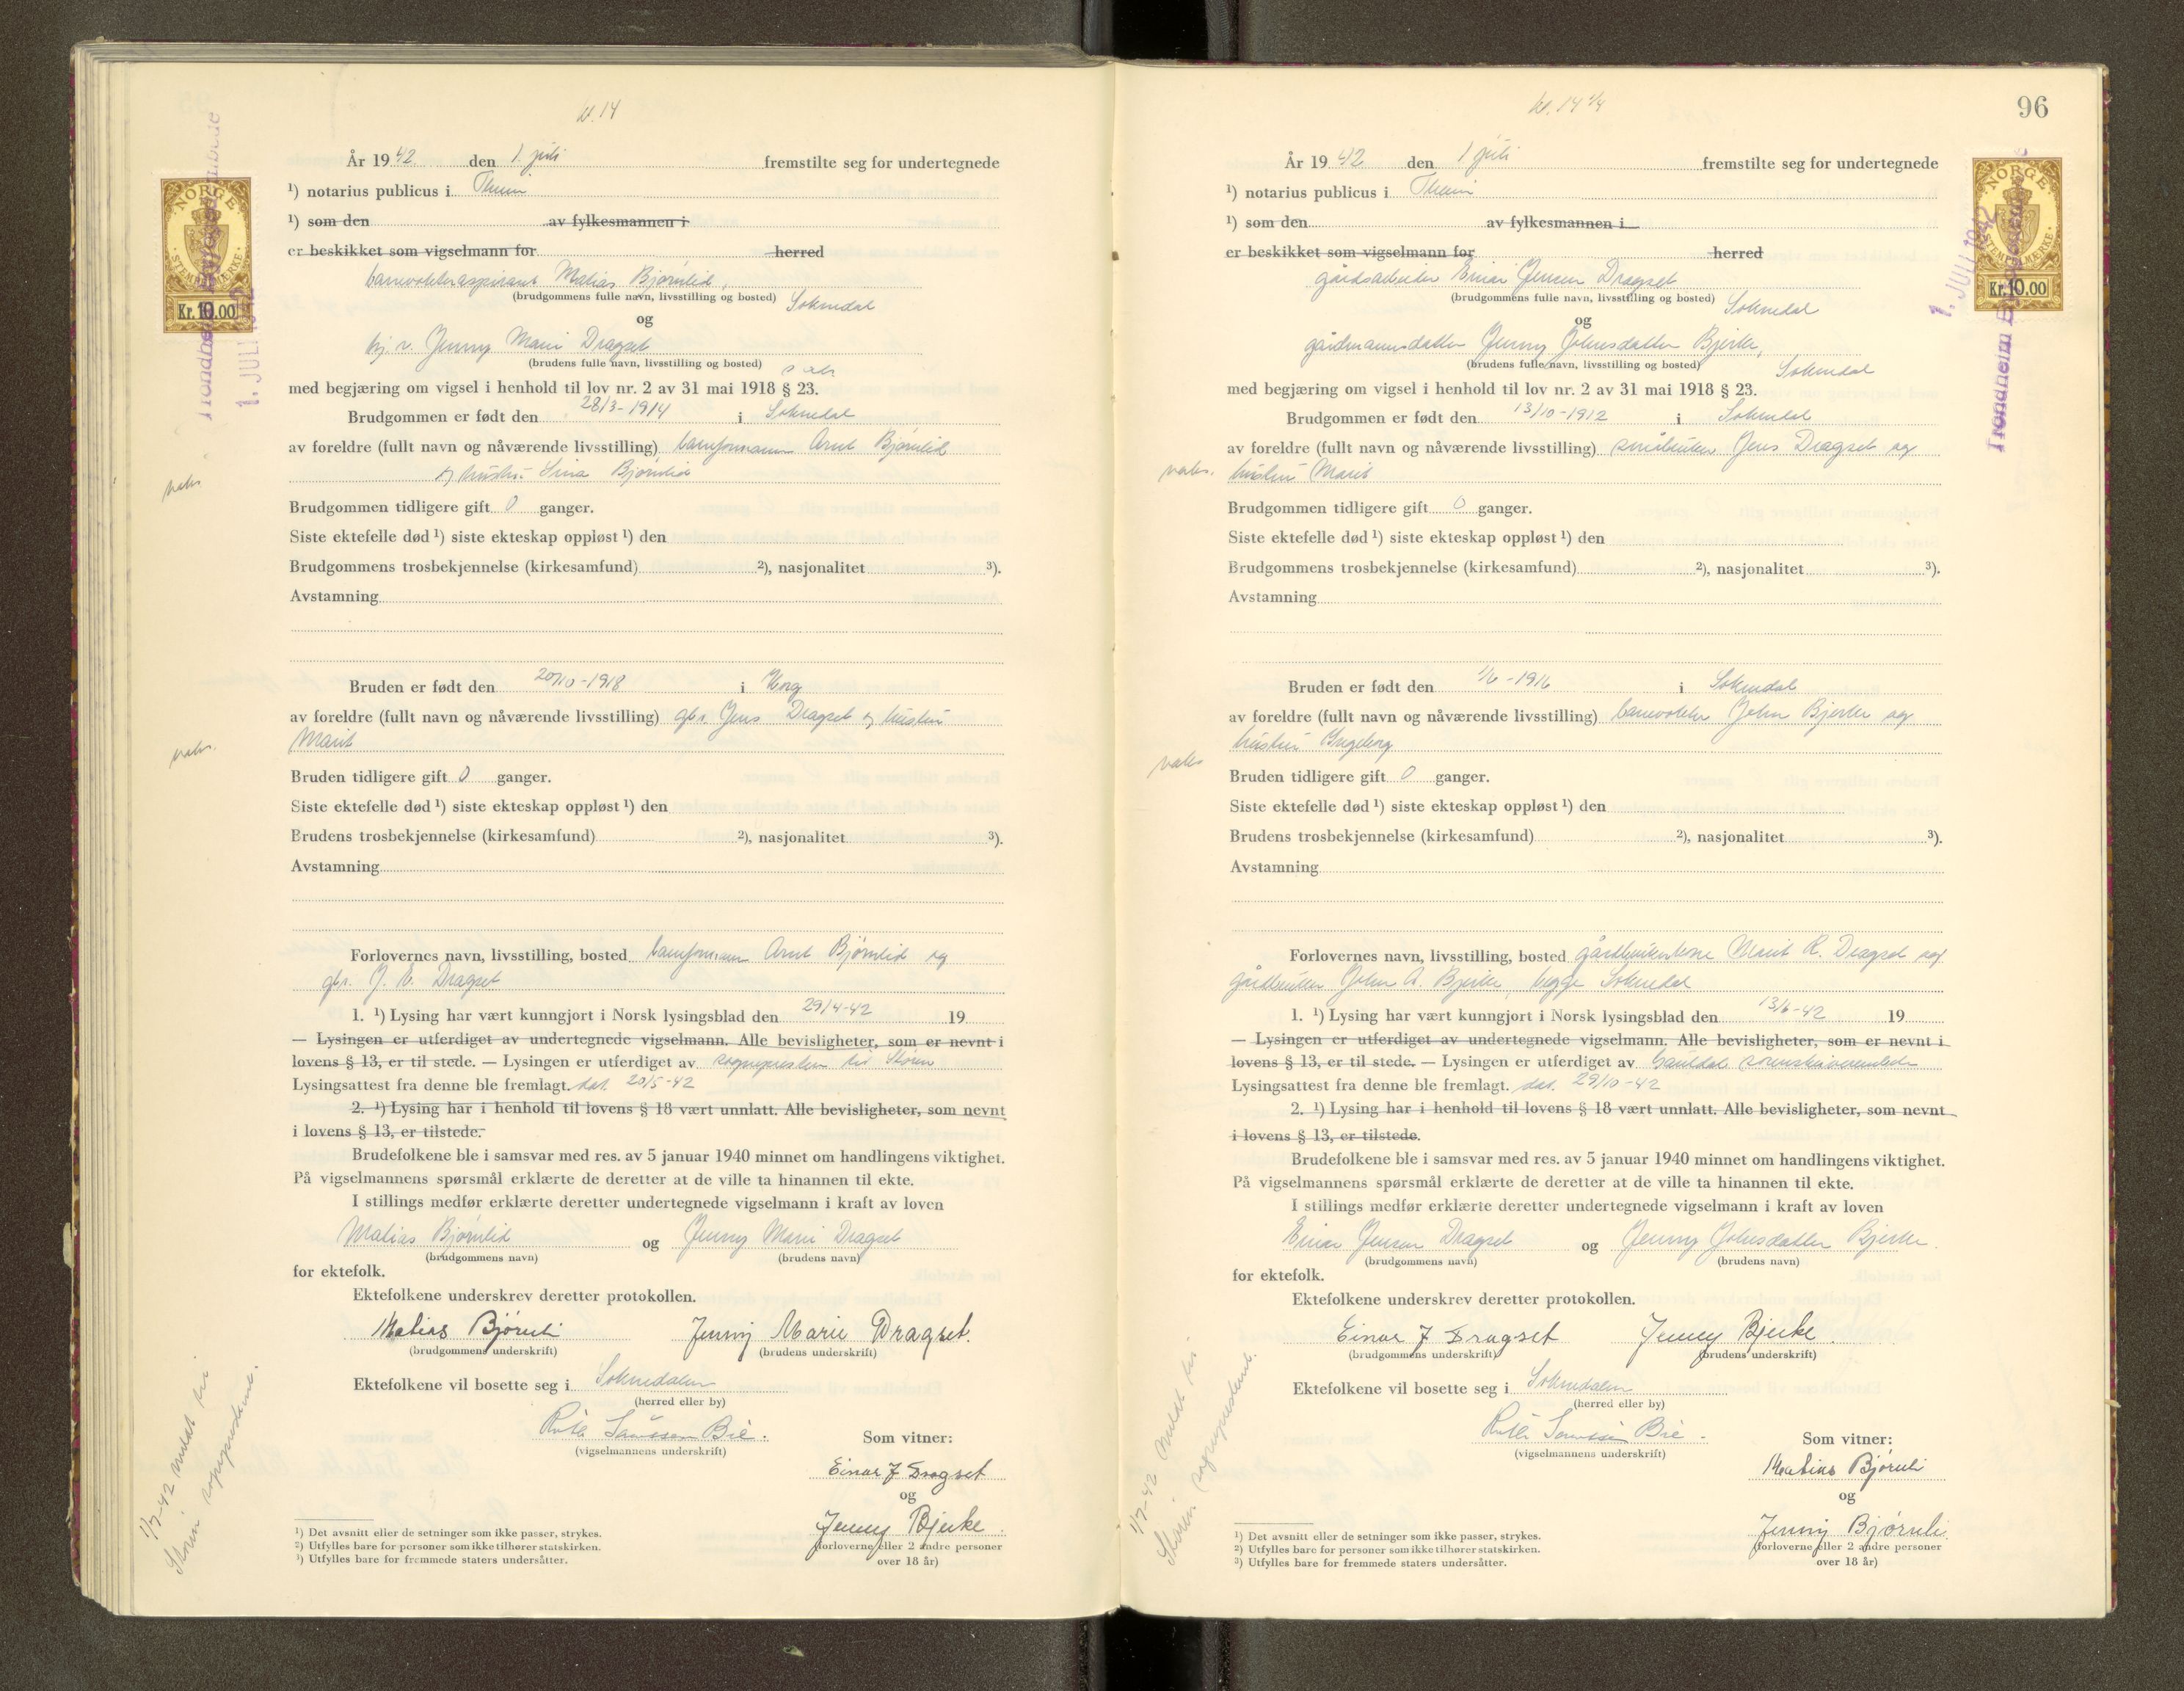 kl. 14
År 1942 den 1. juli fremstilte seg for undertegnede
¹) notarius publicus i Theim
¹) som den av fylkesmannen i
er beskikket som vigselmann for herred
banevokteraspirant Matias Bjørnlid,
(brudgommens fulle navn, livsstilling og bosted) Soknedal
og
Jenny Marie Dragset
(brudens fulle navn, livsstilling og bosted)
med begjæring om vigsel i henhold til lov nr. 2 av 31 mai 1918 § 23.
Brudgommen er født den 28/3-1914 i Soknedal
av foreldre (fullt navn og nåværende livsstilling) baneformann Arnt Bjørnlid
og hustru Bjørnlid
vaks.
Brudgommen tidligere gift 0 ganger.
Siste ektefelle død ¹) siste ekteskap oppløst ¹) den
Brudgommens trosbekjennelse (kirkesamfund) ²), nasjonalitet ³).
Avstamning
Bruden er født den 20/10-1918 i Horg
av foreldre (fullt navn og nåværende livsstilling) gbr. Jens Dragset og hustru
Marit
vaks.
Bruden tidligere gift 0 ganger.
Siste ektefelle død ¹) siste ekteskap oppløst ¹) den
Brudens trosbekjennelse (kirkesamfund) ²), nasjonalitet ³).
Avstamning
Forlovernes navn, livsstilling, bosted baneformann Arnt Bjørnlid og
gbr. Dragset
1. ¹) Lysing har vært kunngjort i Norsk lysingsblad den 29/4-42 19
— Lysingen er utferdiget av undertegnede vigselmann. Alle bevisligheter, som er nevnt i
lovens § 13, er til stede. — Lysingen er utferdiget av sognepresten til Støren
Lysingsattest fra denne ble fremlagt. dat. 20/5-42
2. ¹) Lysing har i henhold til lovens § 18 vært unnlatt. Alle bevisligheter, som nevnt
i lovens § 13, er tilstede.
Brudefolkene ble i samsvar med res. av 5 januar 1940 minnet om handlingens viktighet.
På vigselmannens spørsmål erklærte de deretter at de ville ta hinannen til ekte.
I stillings medfør erklærte deretter undertegnede vigselmann i kraft av loven
Matias Bjørnlid og Jenny Marie Dragset
(brudgommens navn) (brudens navn)
for ektefolk.
Ektefolkene underskrev deretter protokollen.
Matias Bjørnli Jenny Marie Dragset.
(brudgommens underskrift) (brudens underskrift)
Ektefolkene vil bosette seg i Soknedalen
(herred eller by)
Bie.
(vigselmannens underskrift)
Som vitner:
Einar J Dragset
og
Jenny Bjerke.
(forloverne eller 2 andre personer
over 18 år)
¹) Det avsnitt eller de setninger som ikke passer, strykes.
²) Utfylles bare for personer som ikke tilhører statskirken.
³) Utfylles bare for fremmede staters undersåtter.
1/7-42 meldt til
Støren sogneprestemb.
NORGE
STEMPELMÆRKE
Kr. 10.00
1. JULI 1942
96
kl. 14 1/4
År 1942 den 1 juli fremstilte seg for undertegnede
¹) notarius publicus i Theim
¹) som den av fylkesmannen i
er beskikket som vigselmann for herred
gårdsarbeider Einar Jensen Dragset
(brudgommens fulle navn, livsstilling og bosted) Soknedal
og
gårdmannsdatter Jenny Johnsdatter Bjerke,
(brudens fulle navn, livsstilling og bosted) Soknedal
med begjæring om vigsel i henhold til lov nr. 2 av 31 mai 1918 § 23.
Brudgommen er født den 13/10-1912 i Soknedal
av foreldre (fullt navn og nåværende livsstilling) småbruker Jens Dragset og
vaks. hustru Marit
Brudgommen tidligere gift 0 ganger.
Siste ektefelle død ¹) siste ekteskap oppløst ¹) den
Brudgommens trosbekjennelse (kirkesamfund) ²), nasjonalitet ³).
Avstamning
Bruden er født den 1/6-1916 i Soknedal
av foreldre (fullt navn og nåværende livsstilling) banevokter John Bjerke og
hustru Ingeborg
vaks
Bruden tidligere gift 0 ganger.
Siste ektefelle død ¹) siste ekteskap oppløst ¹) den
Brudens trosbekjennelse (kirkesamfund) ²), nasjonalitet ³).
Avstamning
Forlovernes navn, livsstilling, bosted gårdbrukerkone Marit R. Dragset og
gårdbruker John A. Bjerke, begge Soknedal
1. ¹) Lysing har vært kunngjort i Norsk lysingsblad den 13/6-42 19
— Lysingen er utferdiget av undertegnede vigselmann. Alle bevisligheter, som er nevnt i
lovens § 13, er til stede. — Lysingen er utferdiget av Gauldal sorenskriverembede
Lysingsattest fra denne ble fremlagt. dat. 29/10-42
2. ¹) Lysing har i henhold til lovens § 18 vært unnlatt. Alle bevisligheter, som nevnt
i lovens § 13, er tilstede.
Brudefolkene ble i samsvar med res. av 5 januar 1940 minnet om handlingens viktighet.
På vigselmannens spørsmål erklærte de deretter at de ville ta hinannen til ekte.
I stillings medfør erklærte deretter undertegnede vigselmann i kraft av loven
Einar Jensen Dragset og Jenny Johnsdatter Bjerke.
(brudgommens navn) (brudens navn)
for ektefolk.
Ektefolkene underskrev deretter protokollen.
Einar J Dragset Jenny Bjerke.
(brudgommens underskrift) (brudens underskrift)
Ektefolkene vil bosette seg i Soknedalen
(herred eller by)
Bie.
(vigselmannens underskrift)
Som vitner:
Matias Bjørnli
og
Jenny Bjørnli.
(forloverne eller 2 andre personer
over 18 år)
¹) Det avsnitt eller de setninger som ikke passer, strykes.
²) Utfylles bare for personer som ikke tilhører statskirken.
³) Utfylles bare for fremmede staters undersåtter.
1/7-42 meldt til
Støren sogneprestemb.
NORGE
STEMPELMÆRKE
Kr. 10.00
1. JULI 1942
Trondheim